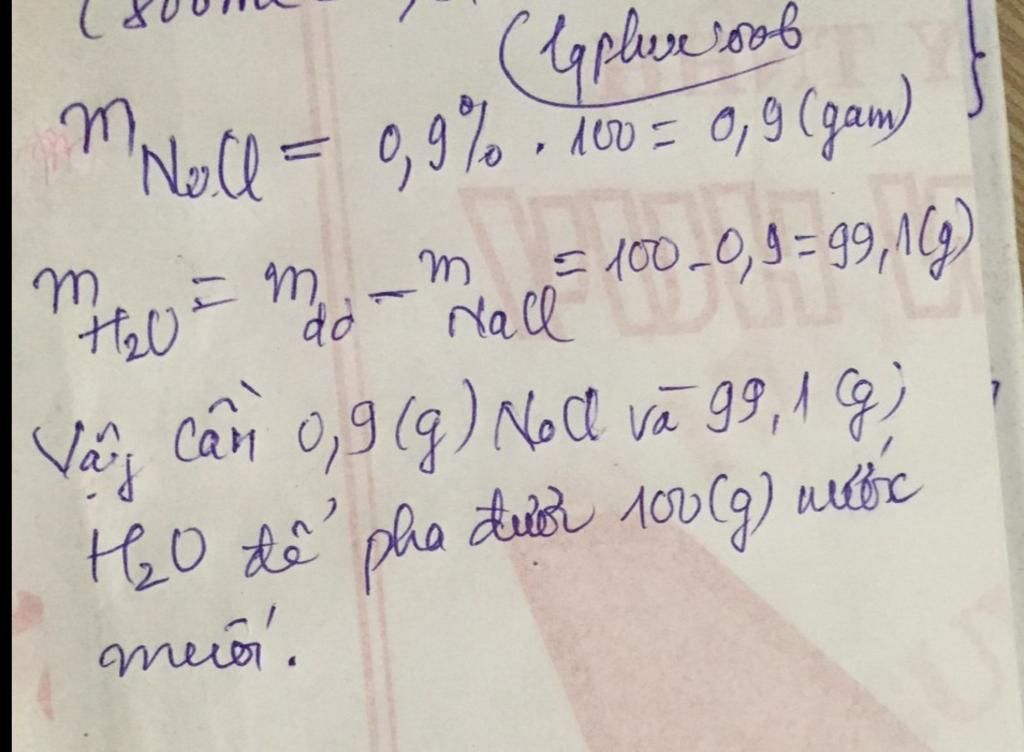 (800ml
m NaCl = 0,9% . 100 = 0,9 (gam)
m H₂O = m dd - m NaCl = 100 - 0,9 = 99,1 (g)
Vậy cần 0,9 (g) NaCl và 99,1 (g)
H₂O để pha được 100 (g) nước
muối.